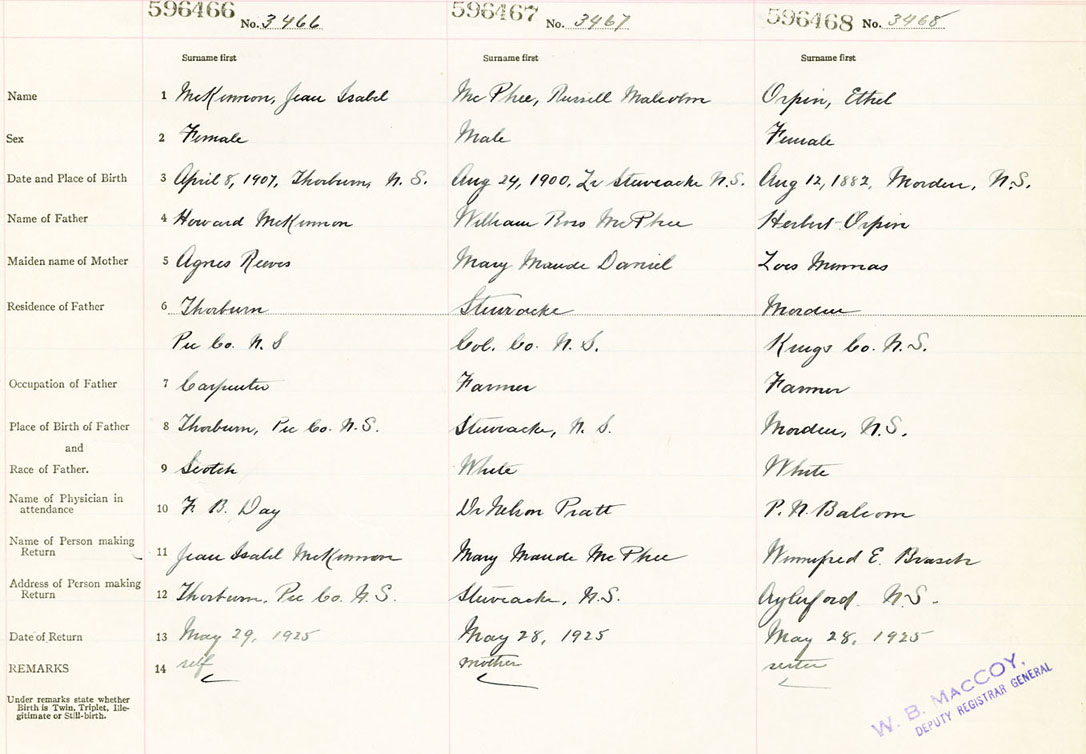 596466 No. 3466 596467 No. 3467 596468 No. 3468
Surname first Surname first Surname first
Name 1 McKinnon, Jean Isabel McPhee, Russell Malcolm Orpin, Ethel
Sex 2 Female Male Female
Date and Place of Birth 3 April 8, 1907, Thorburn, N.S. Aug 24, 1900, Stewiacke N.S. Aug 12, 1882, Morden, N.S.
Name of Father 4 Howard McKinnon William Ross McPhee Herbert Orpin
Maiden name of Mother 5 Agnes Reeves Mary Maude Daniel Lois
Residence of Father 6 Thorburn Stewiacke Morden
Pic Co. N.S Col. Co. N.S. Kings Co. N.S.
Occupation of Father 7 Carpenter Farmer Farmer
Place of Birth of Father 8 Thorburn, Pic Co. N.S. Stewiacke, N.S. Morden, N.S.
and
Race of Father. 9 Scotch White White
Name of Physician in
attendance 10 F. B. Day Dr Nelson Pratt P. N. Balcom
Name of Person making
Return 11 Jean Isabel McKinnon Mary Maude McPhee Winnifred E.
Address of Person making
Return 12 Thorburn, Pic Co. N.S. Stewiacke, N.S. Aylesford. N.S.
Date of Return 13 May 29, 1925 May 28, 1925 May 28, 1925
REMARKS 14 self mother sister
Under remarks state whether
Birth is Twin, Triplet, Ille-
gitimate or Still-birth.
W. B. MACCOY,
DEPUTY REGISTRAR GENERAL